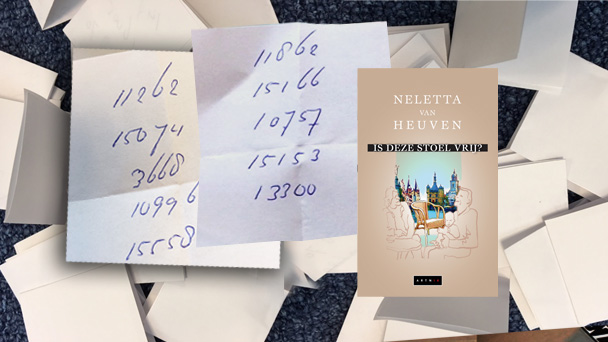 11262
15074
3668
10996
15558
11862
15166
10757
15153
13300
NELETTA
VAN
HEUVEN
IS DEZE STOEL VRIJ?